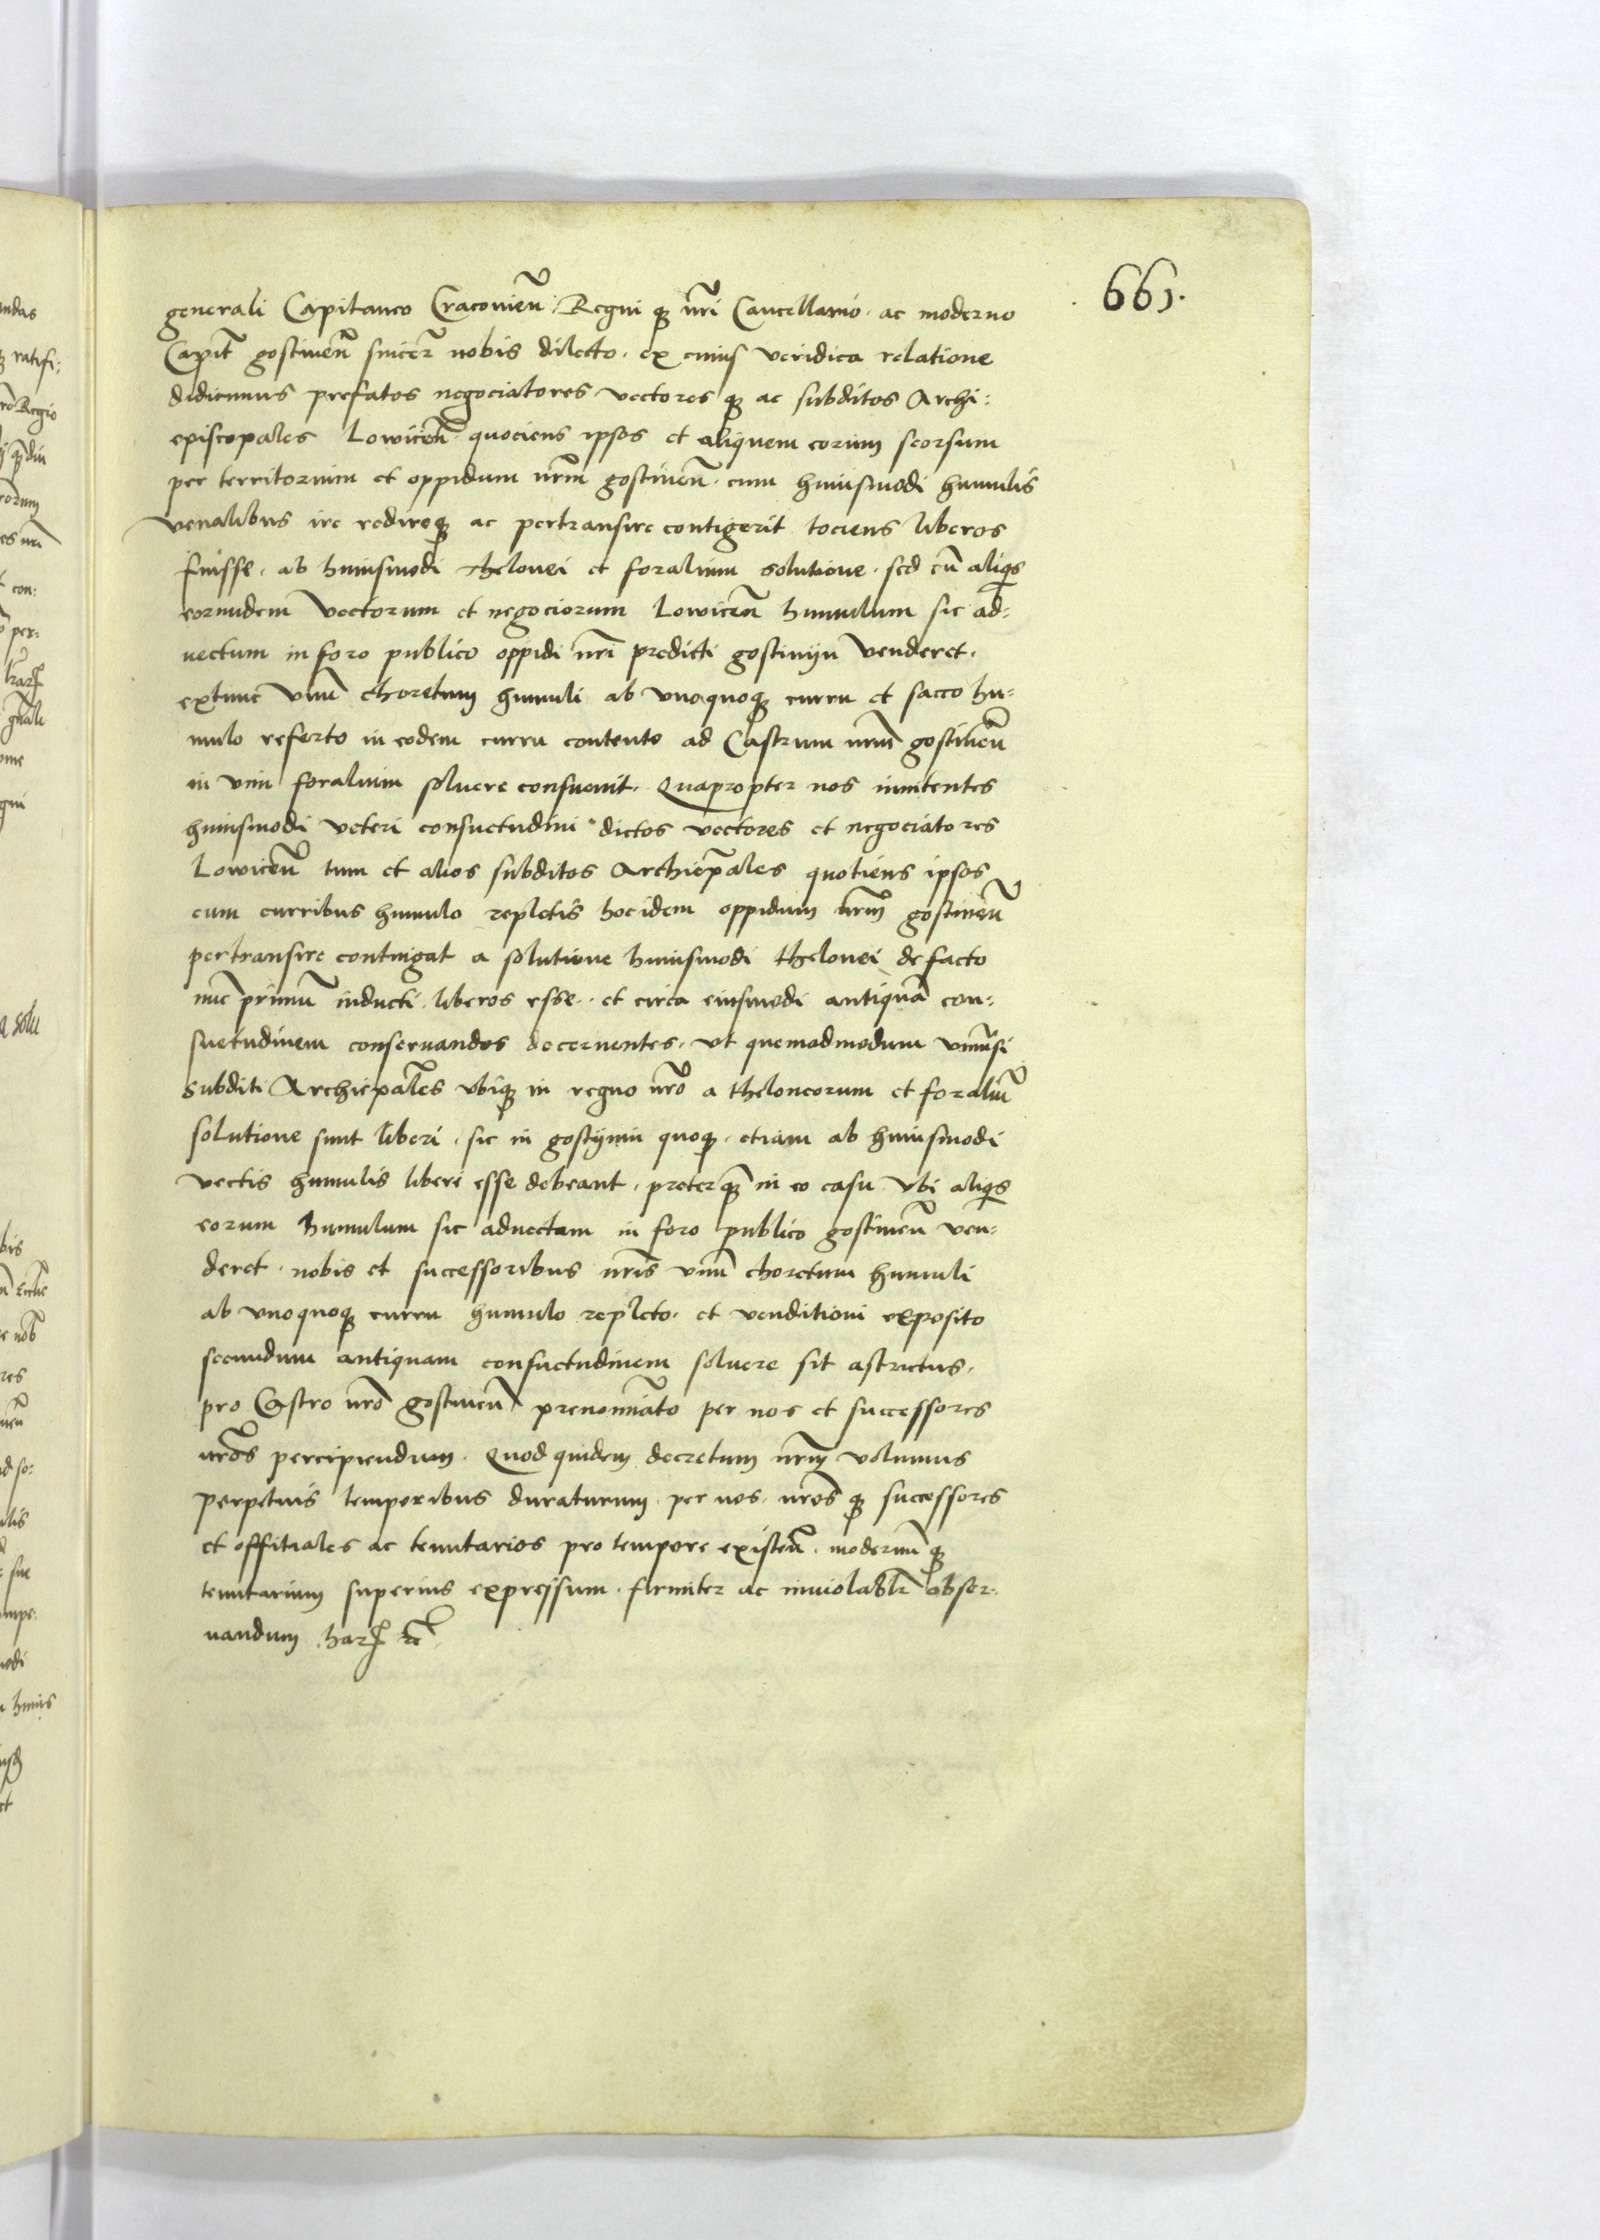 661.
generali Capitaneo Cracovien̄. Regni qȝ nr̄i Cancellario. ac moderno
Capit̄ gostinen̄ sincer̄ nobis dilecto. ex cuius veridica relatione
didicimus prefatos negociatores vectores qȝ ac subditos Archi:
episcopales Lowicen̄. quociens ipsos et aliquem eorum seorsum
per territorium et oppidum nr̄m gostinen̄. cum huiusmodi humulis
venalibus ire redireqȝ ac pertransire contigerit tociens liberos
fuisse. ab huiusmodi thelonei et foralium solutione. sed cū aliqis
eorundem vectorum et negociorum Lowicen̄ humulum sic ad:
uectum in foro publico oppidi nr̄i predicti gostinijn venderet.
extunc vnū choretum humuli ab vnoquoqȝ curru et sacco hu:
mulo referto in eodem curru contento ad Castrum nr̄m gostinen̄
in vim foralium soluere consueuit. Quapropter nos innitentes
huiusmodi veteri consuetudini dictos vectores et negociatores
Lowicen̄ tum et alios subditos Archiep̄ales quotiens ipsos
cum curribus humulo repletis hoc idem oppidum nr̄m gostinen̄
pertransire contingat a solutione huiusmodi thelonei de facto
nūc primū inducti liberos esse. et circa eiusmodi antiquā con:
suetudinem conseruandos decernentes. vt quemadmodum vniūsi
subditi Archiep̄ales vbiqȝ in regno nr̄o a theloneorum et foraliū
solutione sunt liberi. sic in gostijnin quoqȝ. etiam ab huiusmodi
vectis humulis liberi esse debeant. preterqȝ in eo casu vbi aliqis
eorum humulum sic aduectam in foro publico gostinen̄ ven:
deret. nobis et successoribus nr̄is vnū choretum humuli
ab vnoquoqȝ curru humulo repleto. et venditioni exposito
secundum antiquam consuetudinem soluere sit astrictus.
pro Castro nr̄o gostinen̄ prenominato per nos et successores
nr̄os percipiendum. Quod quidem decretum nr̄m volumus
perpetuis temporibus duraturum. per nos. nr̄os qȝ successores
et offitiales ac tenutarios pro tempore existen̄. modernū qȝ
tenutarium superius expressum. firmiter ac inuiolablr̄ obser:
uandum. har̄ꝫ ꝛc̄